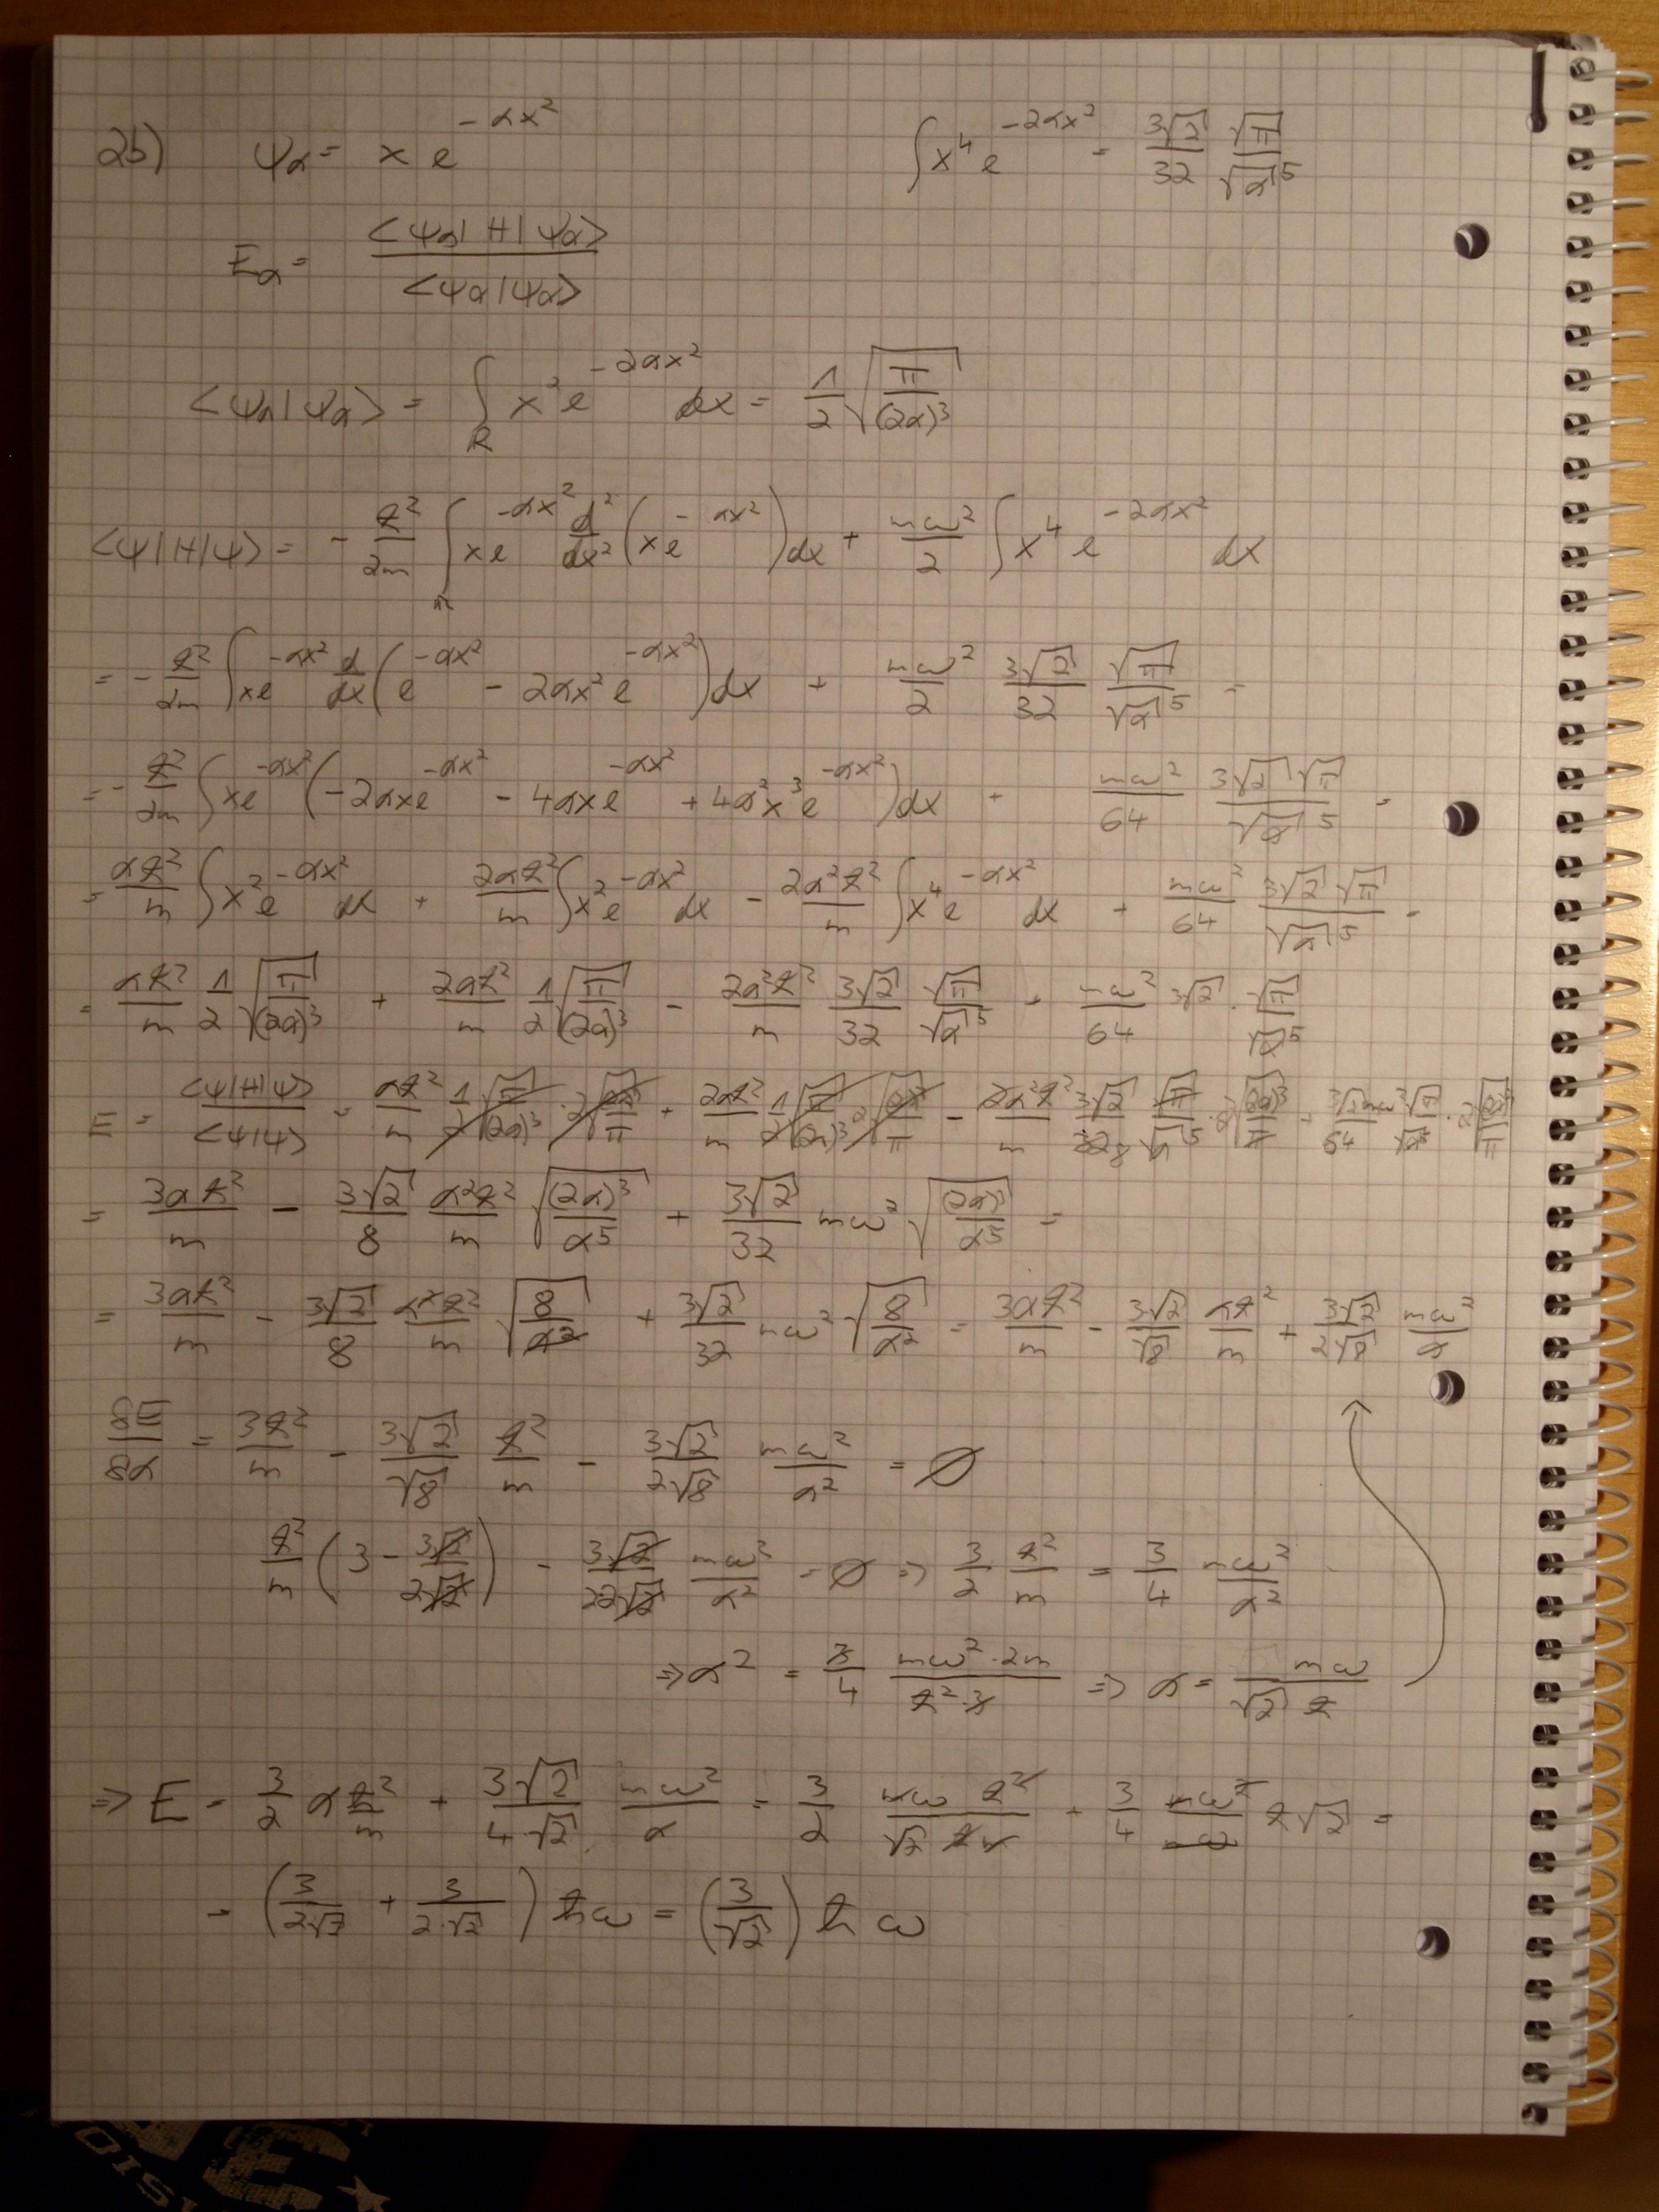 2b) ψα = x e^{-αx²}    ∫x⁴e^{-2αx²} = 3√2/32 √π/√α⁵
Eα = <ψα|H|ψα>/<ψα|ψα>
<ψα|ψα> = ∫_R x²e^{-2αx²} dx = 1/2 √(π/(2α)³)
<ψ|H|ψ> = -ħ²/2m ∫_R xe^{-αx²} d²/dx² (xe^{-αx²})dx + mω²/2 ∫x⁴e^{-2αx²} dx
= -ħ²/2m ∫xe^{-αx²} d/dx (e^{-αx²} - 2αx²e^{-αx²})dx + mω²/2 3√2/32 √π/√α⁵ =
= -ħ²/2m ∫xe^{-αx²}(-2αxe^{-αx²} - 4αxe^{-αx²} + 4α²x³e^{-αx²})dx + mω²/64 3√2√π/√α⁵ =
= αħ²/m ∫x²e^{-αx²} dx + 2αħ²/m ∫x²e^{-αx²} dx - 2α²ħ²/m ∫x⁴e^{-αx²} dx + mω²/64 3√2√π/√α⁵ =
= αħ²/m 1/2 √(π/(2α)³) + 2αħ²/m 1/2 √(π/(2α)³) - 2α²ħ²/m 3√2/32 √π/√α⁵ + mω²/64 3√2 · √π/√α⁵
E = <ψ|H|ψ>/<ψ|ψ> = αħ²/m 1/2 √(π/(2α)³) · 2√((2α)³/π) + 2αħ²/m 1/2 √(π/(2α)³) 2√((2α)³/π) - 2α²ħ²/m 3√2/32 8 √π/√α⁵ · 2√((2α)³/π) + 3√2mω²√π/64√α⁵ · 2√((2α)³/π)
= 3αħ²/m - 3√2/8 α²ħ²/m √((2α)³/α⁵) + 3√2/32 mω² √((2α)³/α⁵) =
= 3αħ²/m - 3√2/8 α²ħ²/m √(8/α²) + 3√2/32 mω² √(8/α²) = 3αħ²/m - 3√2/√8 αħ²/m + 3√2/2√8 mω²/α
∂E/∂α = 3ħ²/m - 3√2/√8 ħ²/m - 3√2/2√8 mω²/α² = 0
ħ²/m (3 - 3√2/2√2) - 3√2/2·2√2 mω²/α² = 0 ⇒ 3/2 ħ²/m = 3/4 mω²/α²
⇒ α² = 3/4 mω²·2m/ħ²·3 ⇒ α = mω/√2 ħ
⇒ E = 3/2 α ħ²/m + 3√2/4·√2 mω²/α = 3/2 mω ħ²/√2 ħ m + 3/4 mω²/mω ħ√2 =
= (3/2√2 + 3/2·√2) ħω = (3/√2) ħ ω